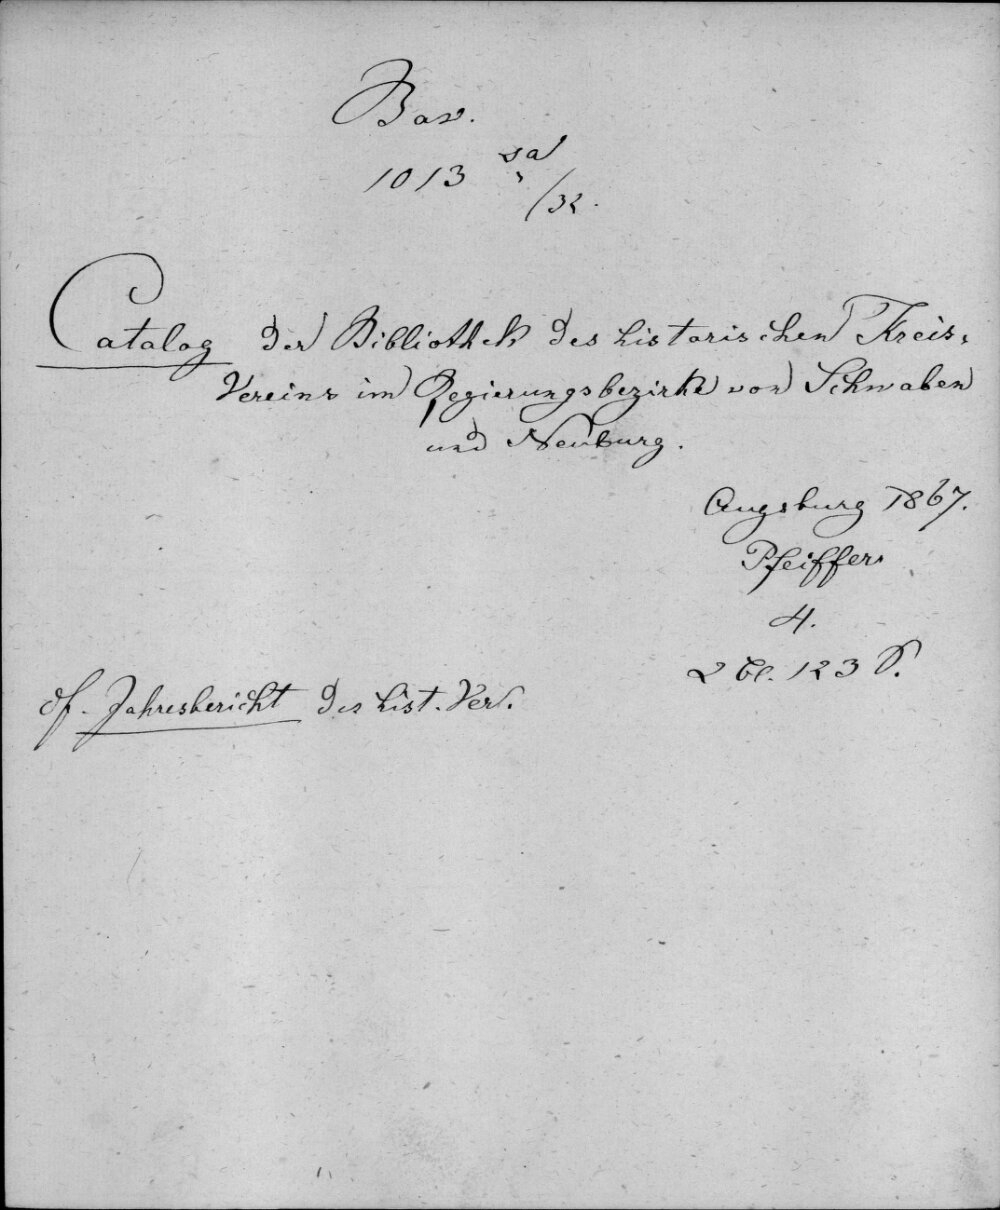 Bav.
1013 sa
/32.
Catalog der Bibliothek des historischen Kreis-
Vereins im Regierungsbezirke von Schwaben
und Neuburg.
Augsburg 1867.
Pfeiffer
4.
2 Bl. 123 S.
cf. Jahresbericht des hist. Ver.